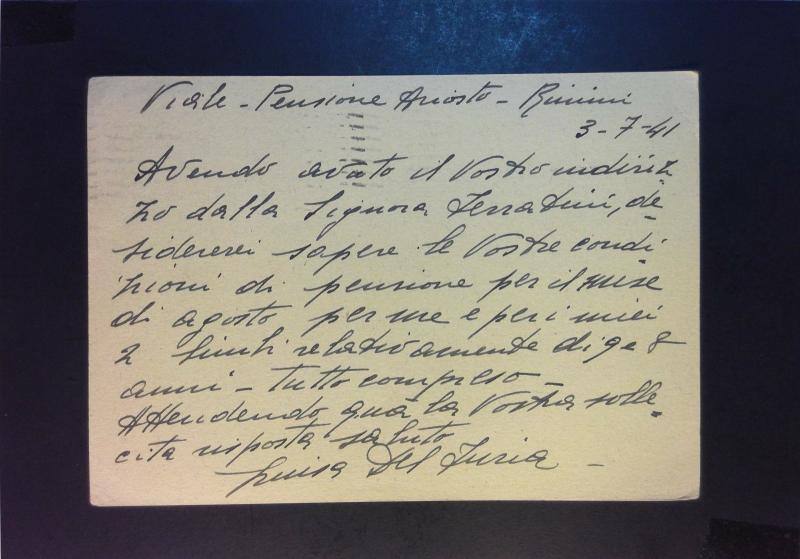 Viale - Pensione Ariosto - Rimini
3-7-41
Avendo avuto il Vostro indiriz
zo dalla Signora Ferratini, de-
sidererei sapere le Vostre condi
zioni di pensione per il mese
di agosto per me e per i miei
2 bimbi relativamente di 9 e 8
anni - tutto compreso -
Attendendo quà la Vostra solle-
cita risposta saluto
Luisa Del Furia -